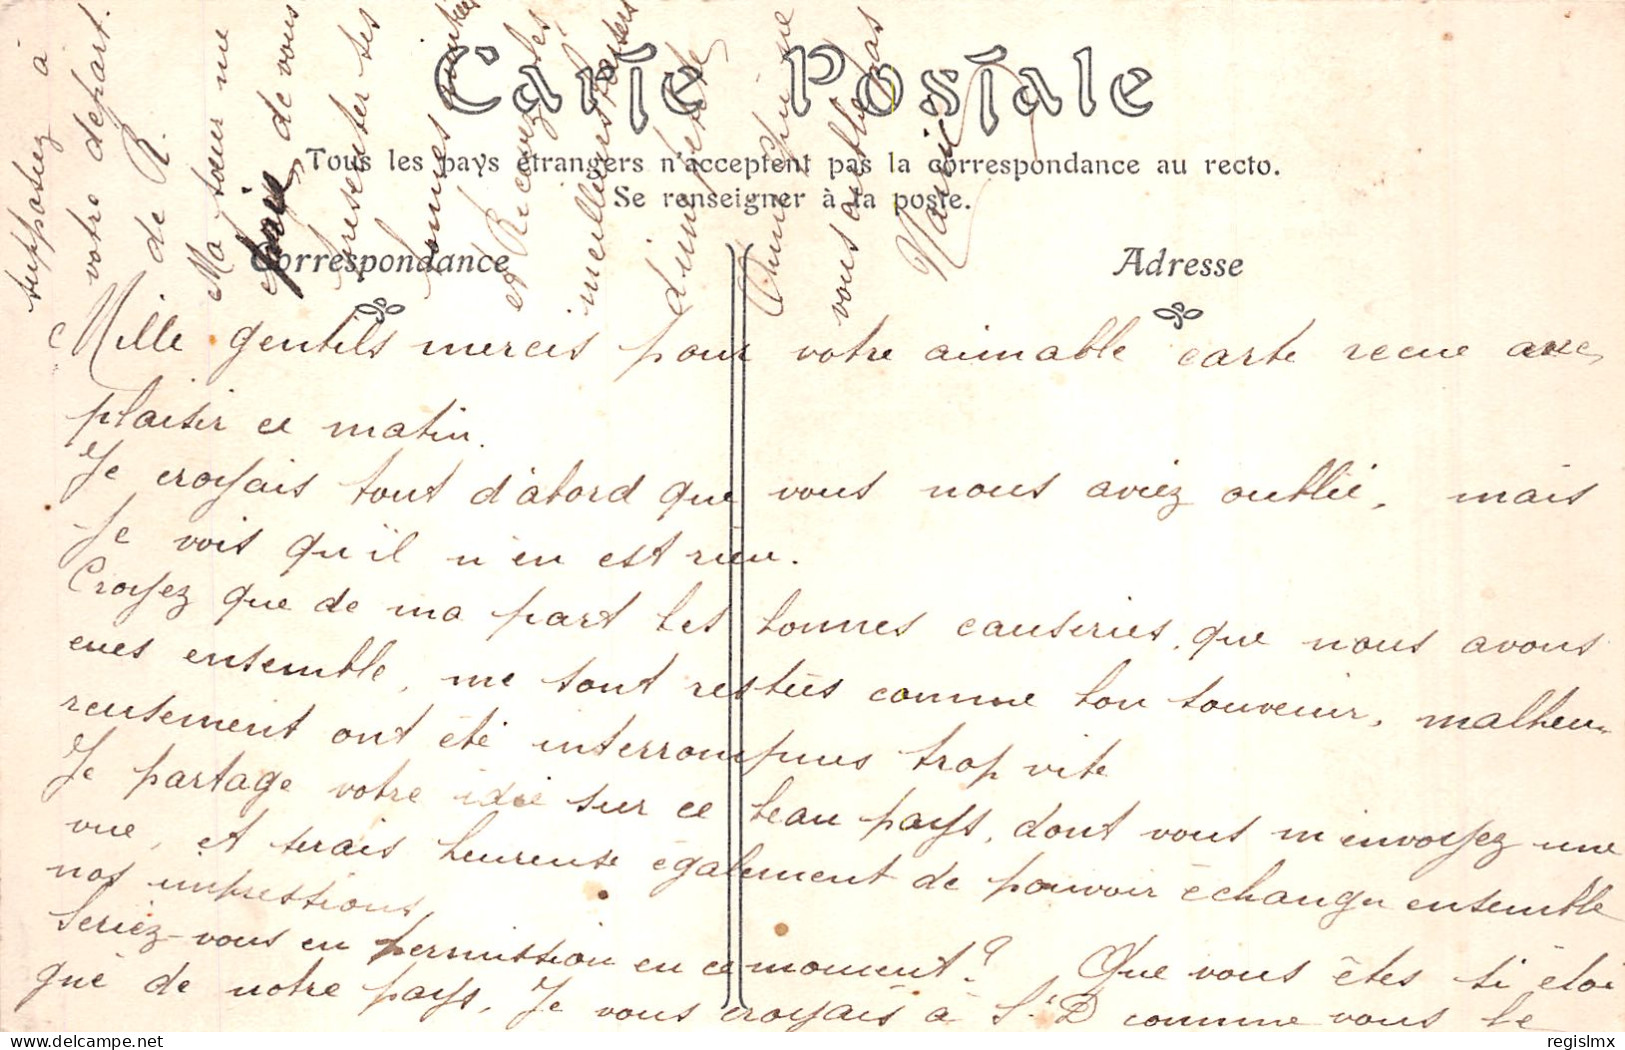 Carte Postale
Tous les pays étrangers n'acceptent pas la correspondance au recto.
Se renseigner à la poste.
Correspondance
Adresse
Mille gentils mercis pour votre aimable carte recue avec
plaisir ce matin.
Je croyais tout d'abord que vous nous aviez oublié, mais
Je vois qu'il n'en est rien.
Croyez que de ma part les bonnes causeries, que nous avons
eues ensemble, me sont restées comme bon souvenir, malheu-
reusement ont été interrompues trop vite
Je partage votre idée sur ce beau pays, dont vous m'envoyez une
vue, et serais heureuse également de pouvoir échanger ensemble
nos impressions,
Seriez-vous en permission en ce moment? Que vous êtes si éloi
gné de notre pays, Je vous croyais à St D comme vous le
supposiez à
votre départ.
de R.
Ma sœur me
prie de vous
presenter ses
bonnes amitiés
et Recevez les
meilleures
d'une petite
amie qui ne
vous oublie pas
regislmx